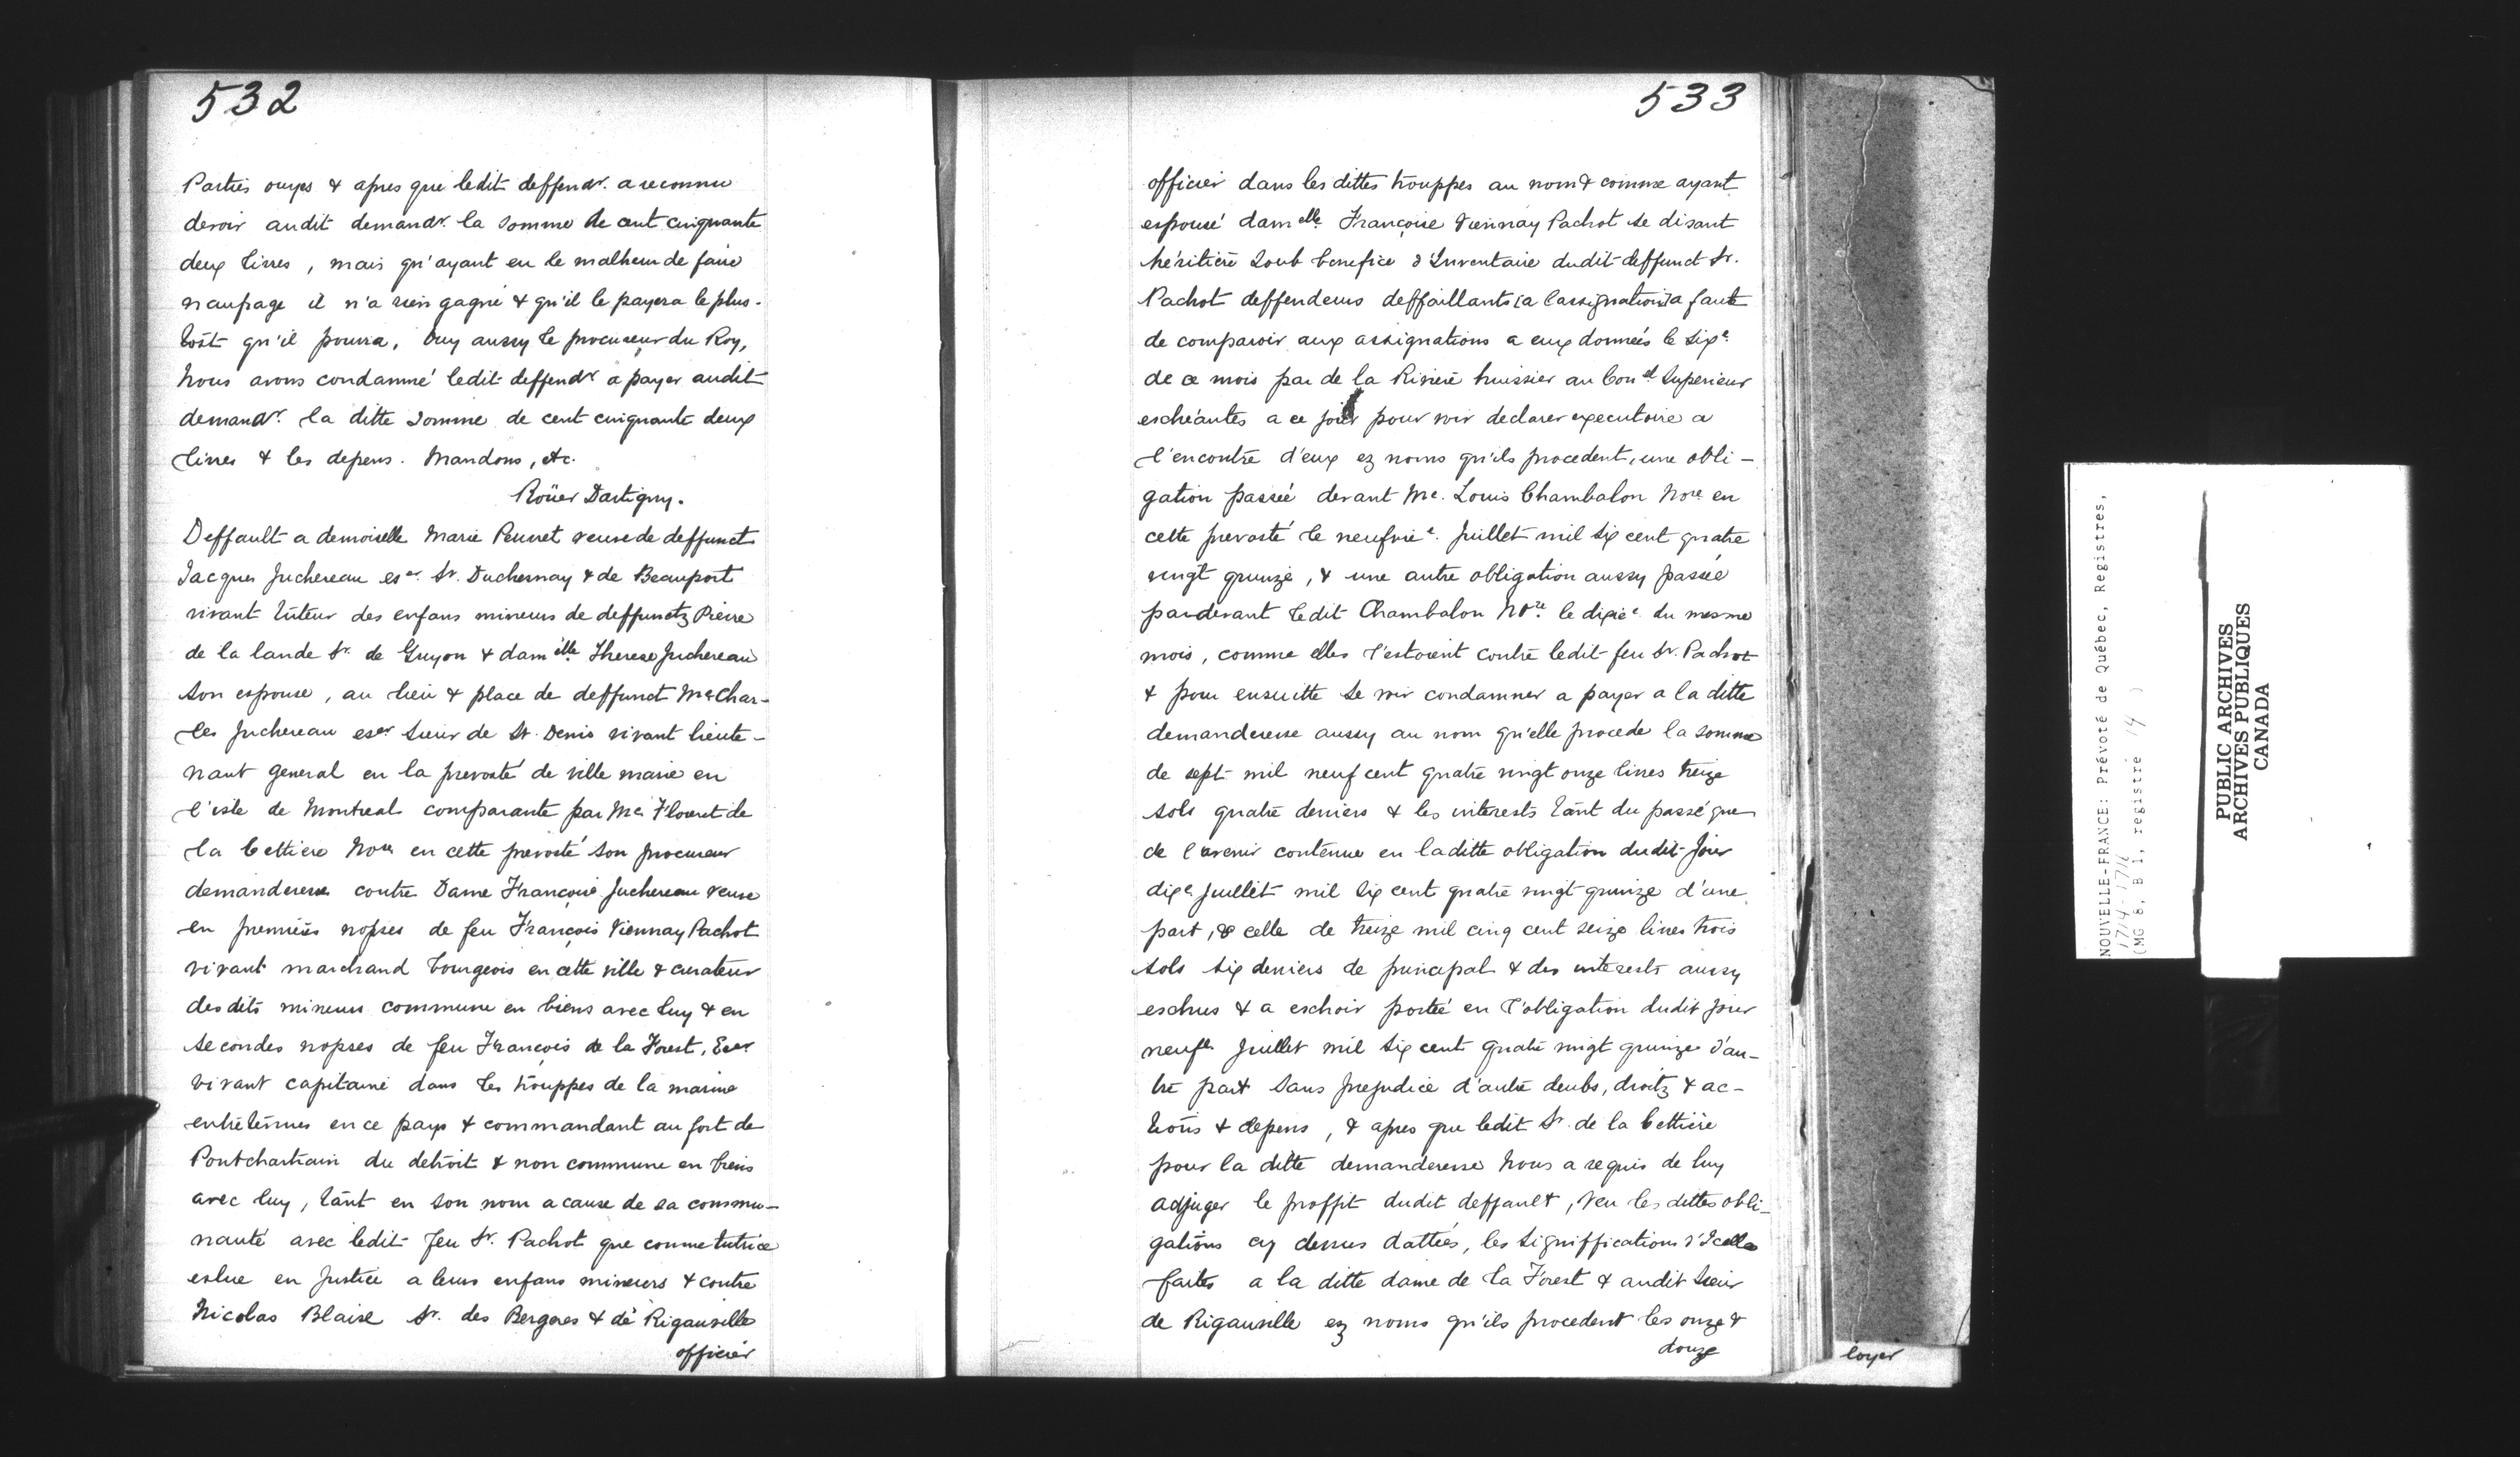 532
Parties ouyes & apres que ledit deffendr. a reconnu
devoir audit demandr. la somme de cent cinquante
deux livres, mais qu'ayant eu le malheur de faire
naufrage il n'a rien gagné & qu'il le payera le plus-
tost qu'il pourra, Ouy aussy le procureur du Roy,
Nous avons condamné ledit deffendr a payer audit
demandr. la ditte somme de cent cinquante deux
livres & les depens. Mandons, etc.
Roüer Dartigny.
Deffault a demoiselle Marie Peuvret veuve de deffunct
Jacques Juchereau eser. Sr. Duchesnay & de Beauport
vivant tuteur des enfans mineurs de deffunctz Pierre
de la lande Sr. de Guyon & damelle Therese Juchereau
son espouse, au lieu & place de deffunct Me Char-
les Juchereau eser Sieur de St. Denis vivant lieute-
nant general en la prevosté de ville marie en
l'isle de Montreal comparante par Me. Florent de
la Cettiere Nore en cette prevosté son procureur
demanderesse contre Dame Françoise Juchereau veuve
en premieres nopses de feu François Viennay Pachot
vivant marchand bourgeois en cette ville & curateur
desdits mineurs commune en biens avec luy & en
secondes nopses de feu François de la Forest, Eser
vivant capitaine dans les trouppes de la marine
entretenues en ce pays & commandant au fort de
Pontchartrain du detroit & non commune en biens
avec luy, tant en son nom a cause de sa commu-
nauté avec ledit feu Sr. Pachot que comme tutrice
eslue en justice a leurs enfans mineurs & contre
Nicolas Blaise Sr. des Bergeres & de Rigauville
officier
533
officier dans les dittes trouppes au nom & comme ayant
espousé damelle Françoise Viennay Pachot se disant
héritiere soub benefice d'Inventaire dudit deffunct Sr.
Pachot deffendeurs deffaillants [a l'assignation] a faute
de comparoir aux assignations a eux données le sixe
de ce mois par de la Riviere huissier au Conel Superieur
escheantes a ce jour pour voir declarer executoire a
l'encontre d'eux ez noms qu'ils procedent, une obli-
gation passée devant Me. Louis Chambalon Nore en
cette prevosté le neufvie. Juillet mil six cent quatre
vingt quinze, & une autre obligation aussy passée
pardevant ledit Chambalon Nore. le dixie du mesme
mois, comme elles l'estoient contre ledit feu Sr. Pachot
& pour ensuitte se voir condamner a payer a la ditte
demanderesse aussy au nom qu'elle procede la somme
de sept mil neuf cent quatre vingt onze livres treize
sols quatre deniers & les interests tant du passé que
de l'avenir contenue en laditte obligation dudit jour
dixe Juillet mil six cent quatre vingt quinze d'une
part, & celle de treize mil cinq cent seize livres trois
sols six deniers de principal & des interests aussy
eschus & a eschoir portée en l'obligation dudit jour
neufe Juillet mil six cent quatre vingt quinze d'au-
tre part sans prejudice d'autre deubs, droitz & ac-
tions & depens, & apres que ledit Sr. de la Cettiere
pour la ditte demanderesse Nous a requis de luy
adjuger le proffit dudit deffault, veu les dittes obli-
gations cy dessus dattées, les significations d'Icelle
faites a la ditte dame de la Forest & audit Sieur
de Rigauville ez noms qu'ils procedent les onze &
douze
loyer
NOUVELLE-FRANCE: Prévoté de Québec, Registres,
1714-1716
(MG 8, B 1, registre 14 )
PUBLIC ARCHIVES
ARCHIVES PUBLIQUES
CANADA